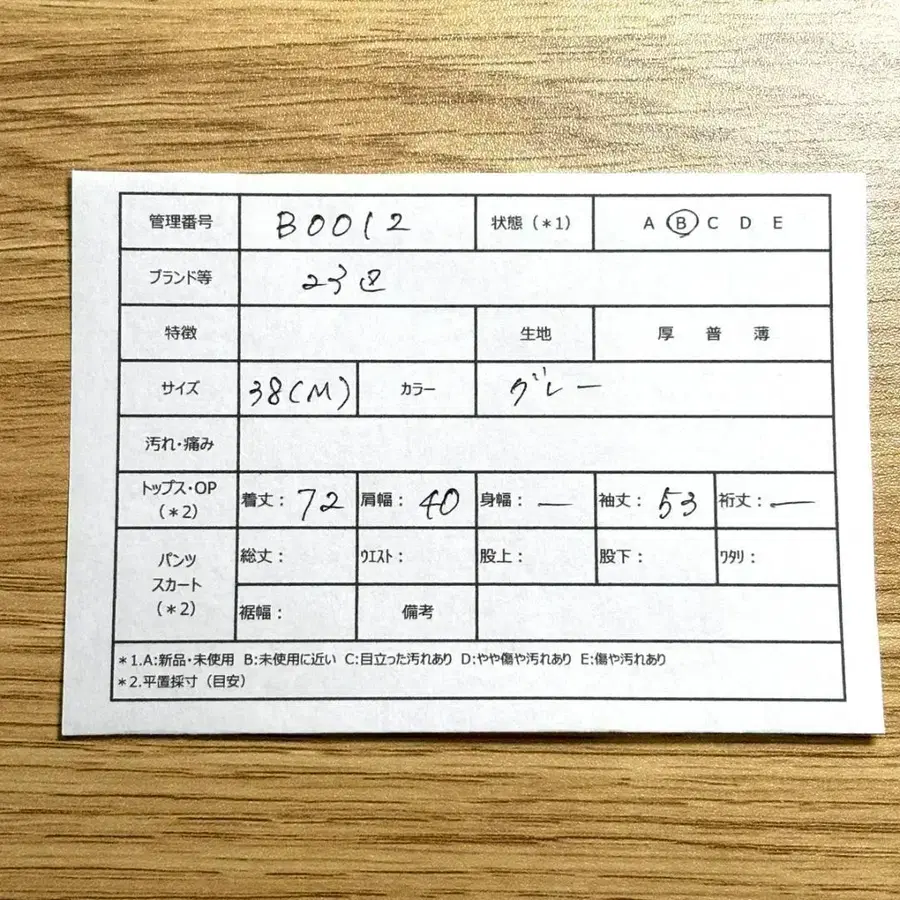 管理番号 B0012 状態（*1） A B C D E
ブランド等 23区
特徴 生地 厚 普 薄
サイズ 38(M) カラー グレー
汚れ・痛み
トップス・OP（*2） 着丈： 72 肩幅： 40 身幅： — 袖丈： 53 裄丈： —
パンツ スカート（*2） 総丈： ｳｴｽﾄ： 股上： 股下： ﾜﾀﾘ：
裾幅： 備考
*1.A:新品・未使用 B:未使用に近い C:目立った汚れあり D:やや傷や汚れあり E:傷や汚れあり
*2.平置採寸（目安）